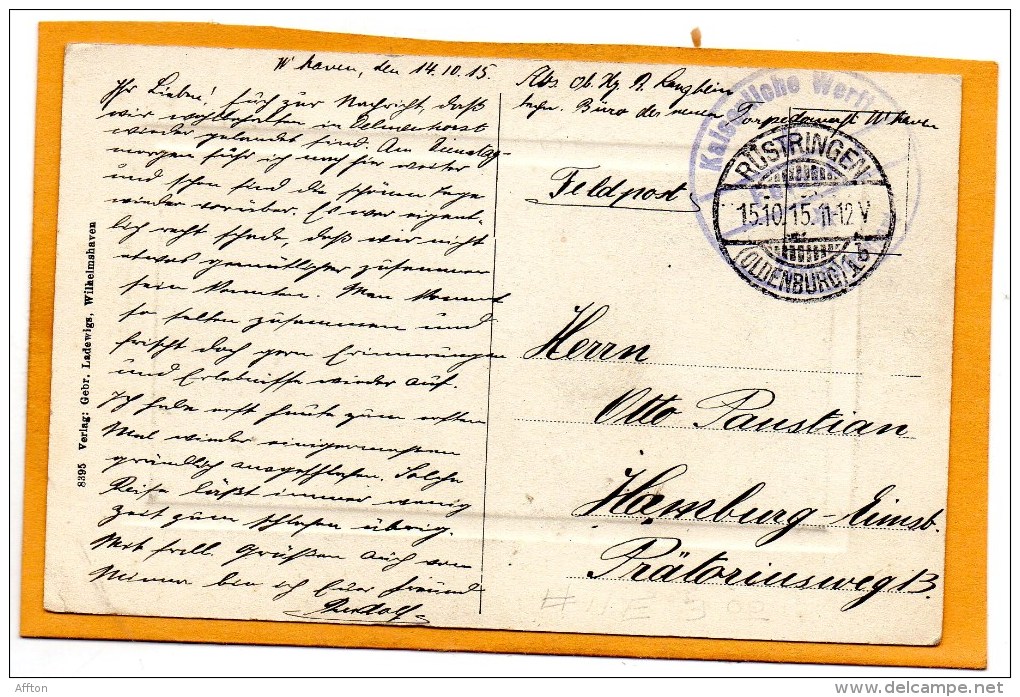 W'haven, den 14.10.15.
Ihr Lieben! Euch zur Nachricht, daß
wir wohlbehalten in Delmenhorst
wieder gelandet sind. Am Dienstag-
morgen fuhr ich nach hier weiter
und schon sind die schönen Tage
wieder vorüber. Es war eigent-
lich recht schade, daß wir nicht
etwas gemütlicher zusammen
sein konnten. Man kommt
so selten zusammen und
frischt doch gern Erinnerungen
und Erlebnisse wieder auf.
Ich habe erst heute zum ersten
Mal wieder einigermassen
gründlich ausgeschlafen. Solche
Reise läßt immer wenig
Zeit zum schlafen übrig.
Mit frdl. Grüßen auch von
Minna bin ich Euer Freund
Rudolf
Abs. Ob. Hz. D. Langhein
techn. Büro der neuen Torpedowerft W'haven
Feldpost
Kaiserliche Werft
RÜSTRINGEN
15.10.15.11-12V
(OLDENBURG)1b
Herrn
Otto Paustian
Hamburg-Eimsb.
Prätoriusweg 13.
8395 Verlag: Gebr. Ladewigs, Wilhelmshaven
Affton
delcampe.net